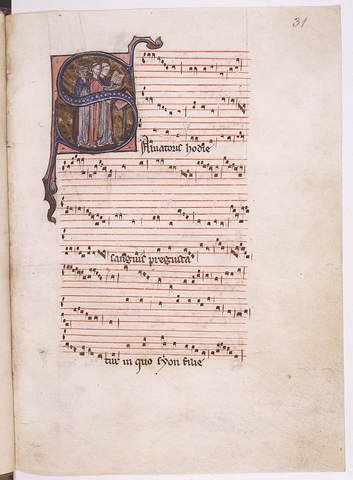 31
Saluatoris hodie
sanguis pregusta
tur in quo syon filie